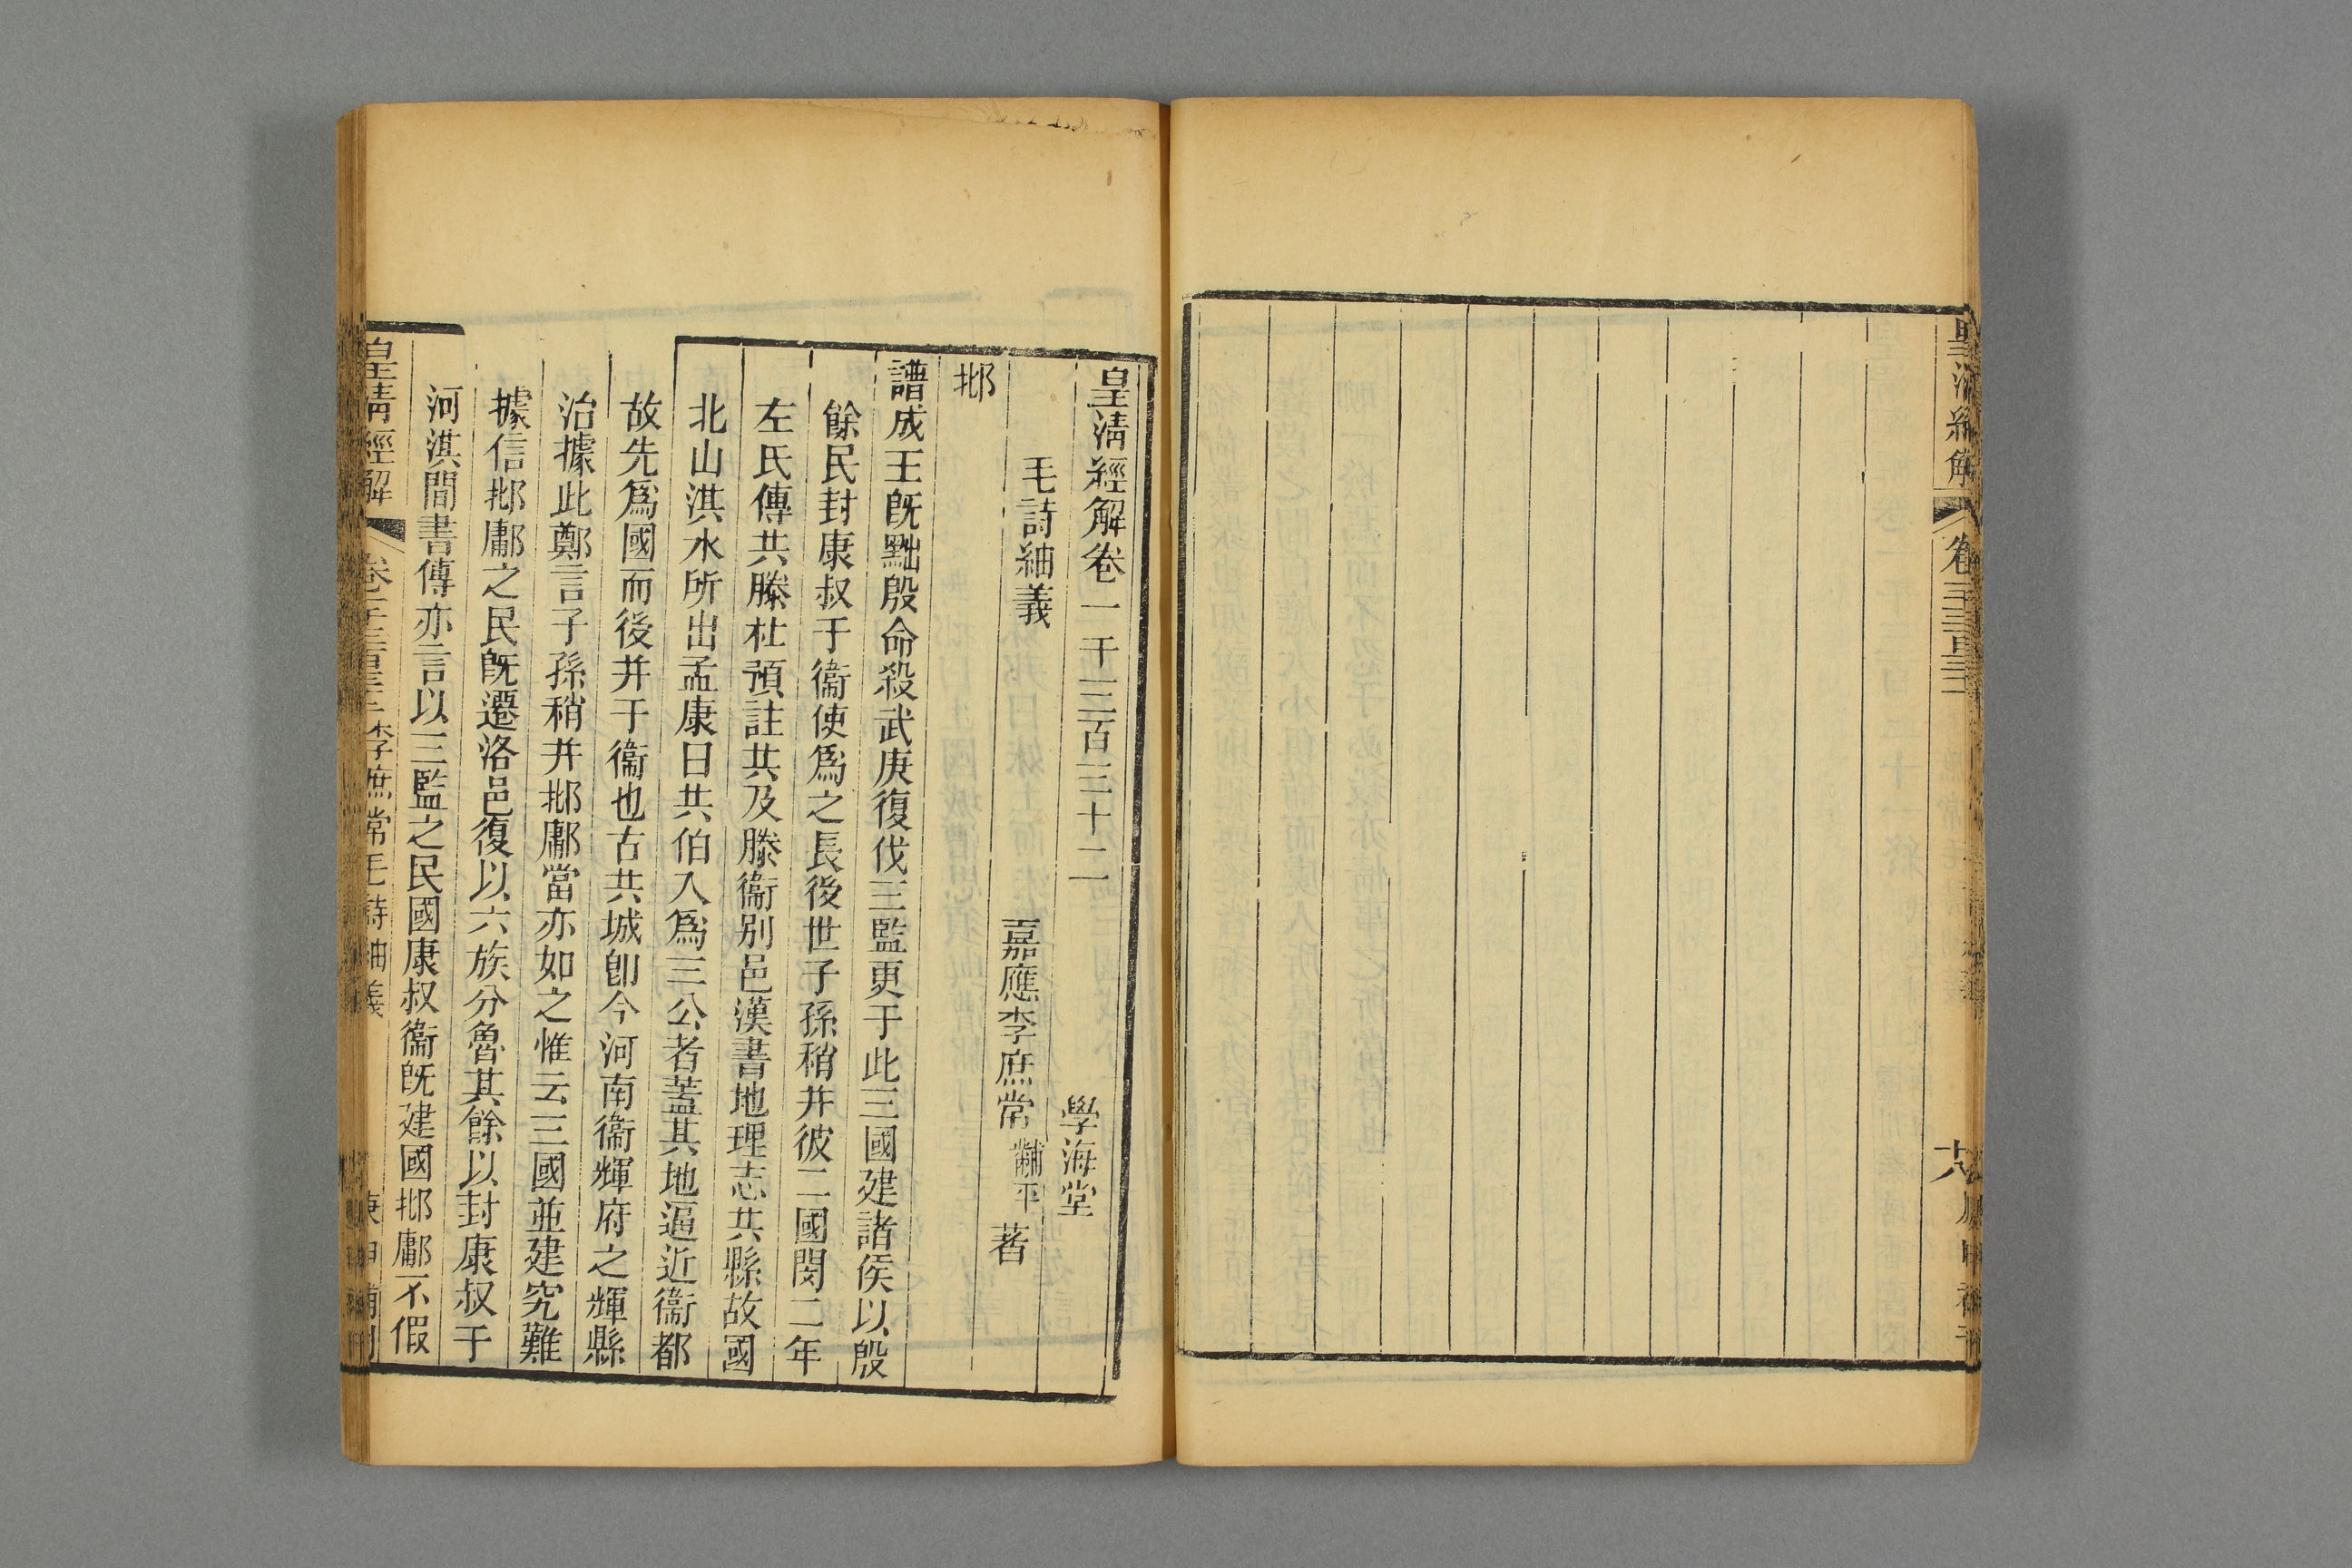 皇清經解卷一千三百三十二
學海堂
毛詩紬義
嘉應李庶常黼平著
邶
譜成王旣黜殷命殺武庚復伐三監更于此三國建諸侯以殷
餘民封康叔于衞使爲之長後世子孫稍并彼二國閔二年
左氏傳共滕杜預註共及滕衞別邑漢書地理志共縣故國
北山淇水所出孟康曰共伯入爲三公者蓋其地逼近衞都
故先爲國而後并于衞也古共城卽今河南衞輝府之輝縣
治據此鄭言子孫稍并邶鄘當亦如之惟云三國並建究難
據信邶鄘之民旣遷洛邑復以六族分魯其餘以封康叔于
河淇間書傳亦言以三監之民國康叔衞旣建國邶鄘不假
皇清經解
李庶常毛詩紬義
庚申補刊
皇清經解
六